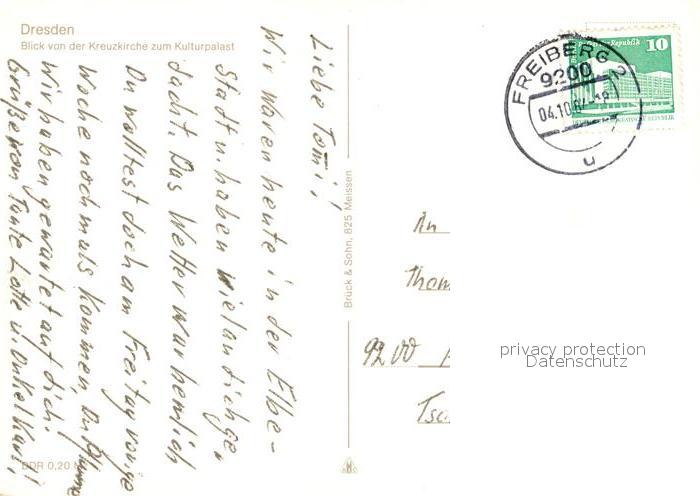 Dresden
Blick von der Kreuzkirche zum Kulturpalast
Liebe Tomi!
Wir waren heute in der Elbe-
Stadt u. haben viel an dich ge,
dacht. Das Wetter war herrlich
Du wolltest doch am Freitag vorige
Woche nochmals kommen, Du
Wir haben gewartet auf dich!
Grüße von Tante Lotte u. Onkel Karl!
DDR 0,20 M
Brück & Sohn, 825 Meissen
FREIBERG 2
9200
04.10.84-18
u
10
An
Thom
9200
Tsc
privacy protection
Datenschutz